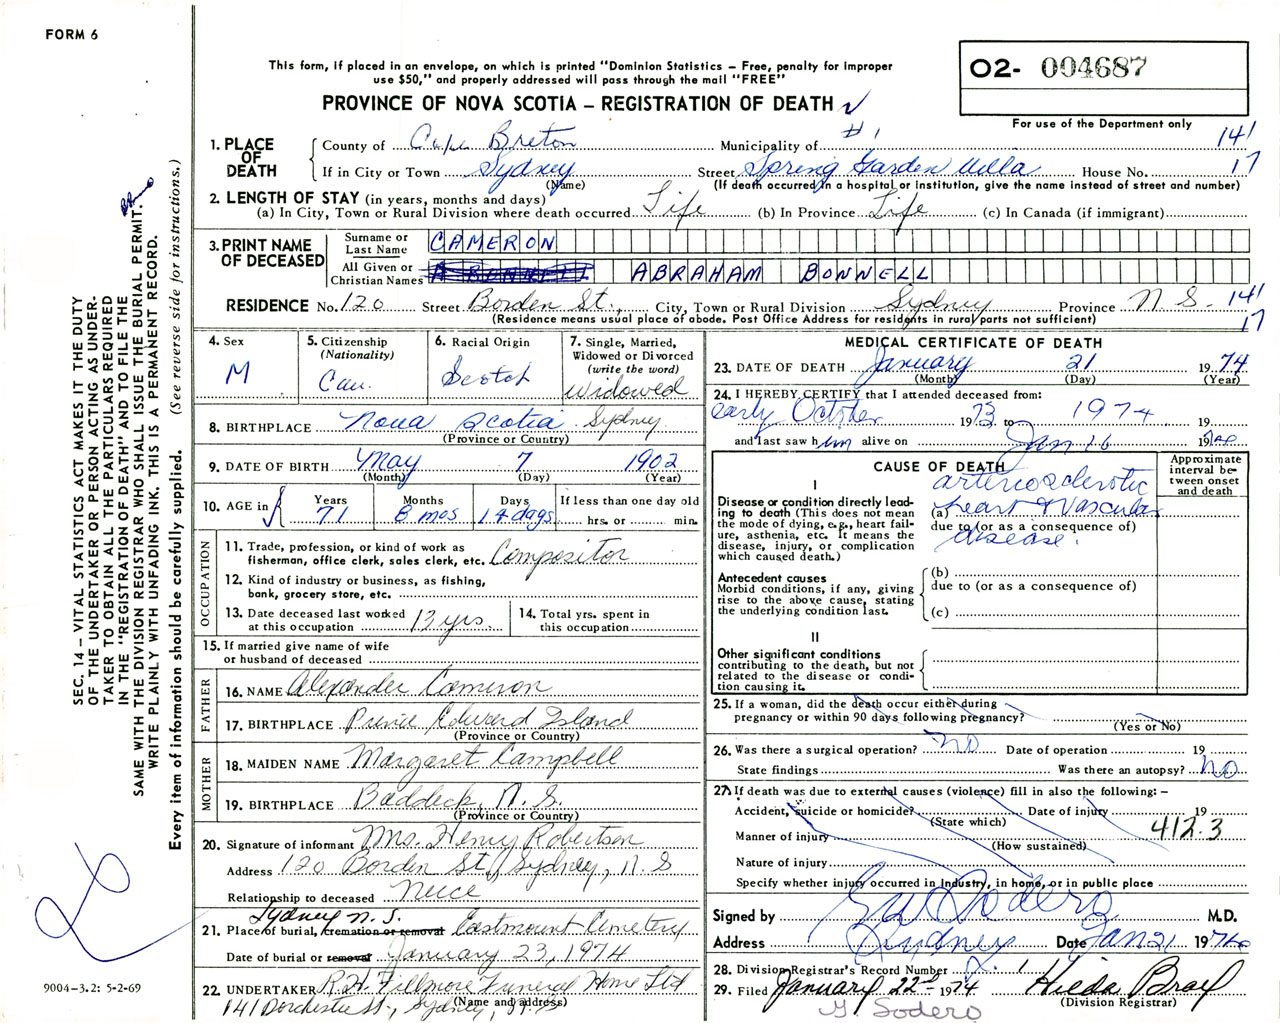 FORM 6
This form, if placed in an envelope, on which is printed "Dominion Statistics – Free, penalty for improper
use $50," and properly addressed will pass through the mail "FREE"
PROVINCE OF NOVA SCOTIA – REGISTRATION OF DEATH
O2- 004687
For use of the Department only
1. PLACE OF DEATH
County of Cape Breton Municipality of #1 141
If in City or Town Sydney Street Spring Garden Villa House No. 17
(Name) (If death occurred in a hospital or institution, give the name instead of street and number)
2. LENGTH OF STAY (in years, months and days)
(a) In City, Town or Rural Division where death occurred Life (b) In Province Life (c) In Canada (if immigrant)
3. PRINT NAME OF DECEASED
Surname or Last Name CAMERON
All Given or Christian Names A BONNELL ABRAHAM BONNELL
RESIDENCE No. 120 Street Borden St., City, Town or Rural Division Sydney Province N S. 141
(Residence means usual place of abode. Post Office Address for residents in rural parts not sufficient) 17
4. Sex M
5. Citizenship (Nationality) Can.
6. Racial Origin Scotch
7. Single, Married, Widowed or Divorced (write the word) Widowed
8. BIRTHPLACE Nova Scotia Sydney
(Province or Country)
9. DATE OF BIRTH May 7 1902
(Month) (Day) (Year)
10. AGE in Years 71 Months 8 mos Days 14 days If less than one day old hrs. or min.
OCCUPATION
11. Trade, profession, or kind of work as
fisherman, office clerk, sales clerk, etc. Compositor
12. Kind of industry or business, as fishing,
bank, grocery store, etc.
13. Date deceased last worked
at this occupation 13 yrs.
14. Total yrs. spent in
this occupation
15. If married give name of wife
or husband of deceased
FATHER
16. NAME Alexander Cameron
17. BIRTHPLACE Prince Edward Island
(Province or Country)
MOTHER
18. MAIDEN NAME Margaret Campbell
19. BIRTHPLACE Baddeck, N.S.
(Province or Country)
20. Signature of informant Mrs. Henry Robertson
Address 120 Borden St., Sydney, N.S
Relationship to deceased Niece
Sydney N.S.
21. Place of burial, cremation or removal Eastmount Cemetery
Date of burial or removal January 23, 1974
22. UNDERTAKER R.W. Fillmore Funeral Home Ltd
(Name and address)
141 Dorchester St., Sydney, N.S.
MEDICAL CERTIFICATE OF DEATH
23. DATE OF DEATH January 21 1974
(Month) (Day) (Year)
24. I HEREBY CERTIFY that I attended deceased from:
early October 1973 to 1974 19
and last saw him alive on Jan 16 1974
CAUSE OF DEATH
Approximate interval between onset and death
I
Disease or condition directly lead-
ing to death (This does not mean
the mode of dying, e.g., heart fail-
ure, asthenia, etc. It means the
disease, injury, or complication
which caused death.)
arteriosclerotic
(a) heart & vascular
due to (or as a consequence of)
disease.
Antecedent causes
Morbid conditions, if any, giving
rise to the above cause, stating
the underlying condition last.
(b)
due to (or as a consequence of)
(c)
II
Other significant conditions
contributing to the death, but not
related to the disease or condi-
tion causing it.
25. If a woman, did the death occur either during
pregnancy or within 90 days following pregnancy?
(Yes or No)
26. Was there a surgical operation? no Date of operation 19
State findings Was there an autopsy? no
27. If death was due to external causes (violence) fill in also the following: –
Accident, suicide or homicide? Date of injury 19
(State which)
Manner of injury 412.3
(How sustained)
Nature of injury
Specify whether injury occurred in industry, in home, or in public place
Signed by Sodero M.D.
Address Sydney Date Jan 21 1974
28. Division Registrar's Record Number
29. Filed January 22nd 1974 Hilda Bray
(Division Registrar)
G. Sodero
SEC. 14 – VITAL STATISTICS ACT MAKES IT THE DUTY
OF THE UNDERTAKER OR PERSON ACTING AS UNDER-
TAKER TO OBTAIN ALL THE PARTICULARS REQUIRED
IN THE "REGISTRATION OF DEATH" AND TO FILE THE
SAME WITH THE DIVISION REGISTRAR WHO SHALL ISSUE THE BURIAL PERMIT.
WRITE PLAINLY WITH UNFADING INK. THIS IS A PERMANENT RECORD.
Every item of information should be carefully supplied. (See reverse side for instructions.)
9004-3.2: 5-2-69